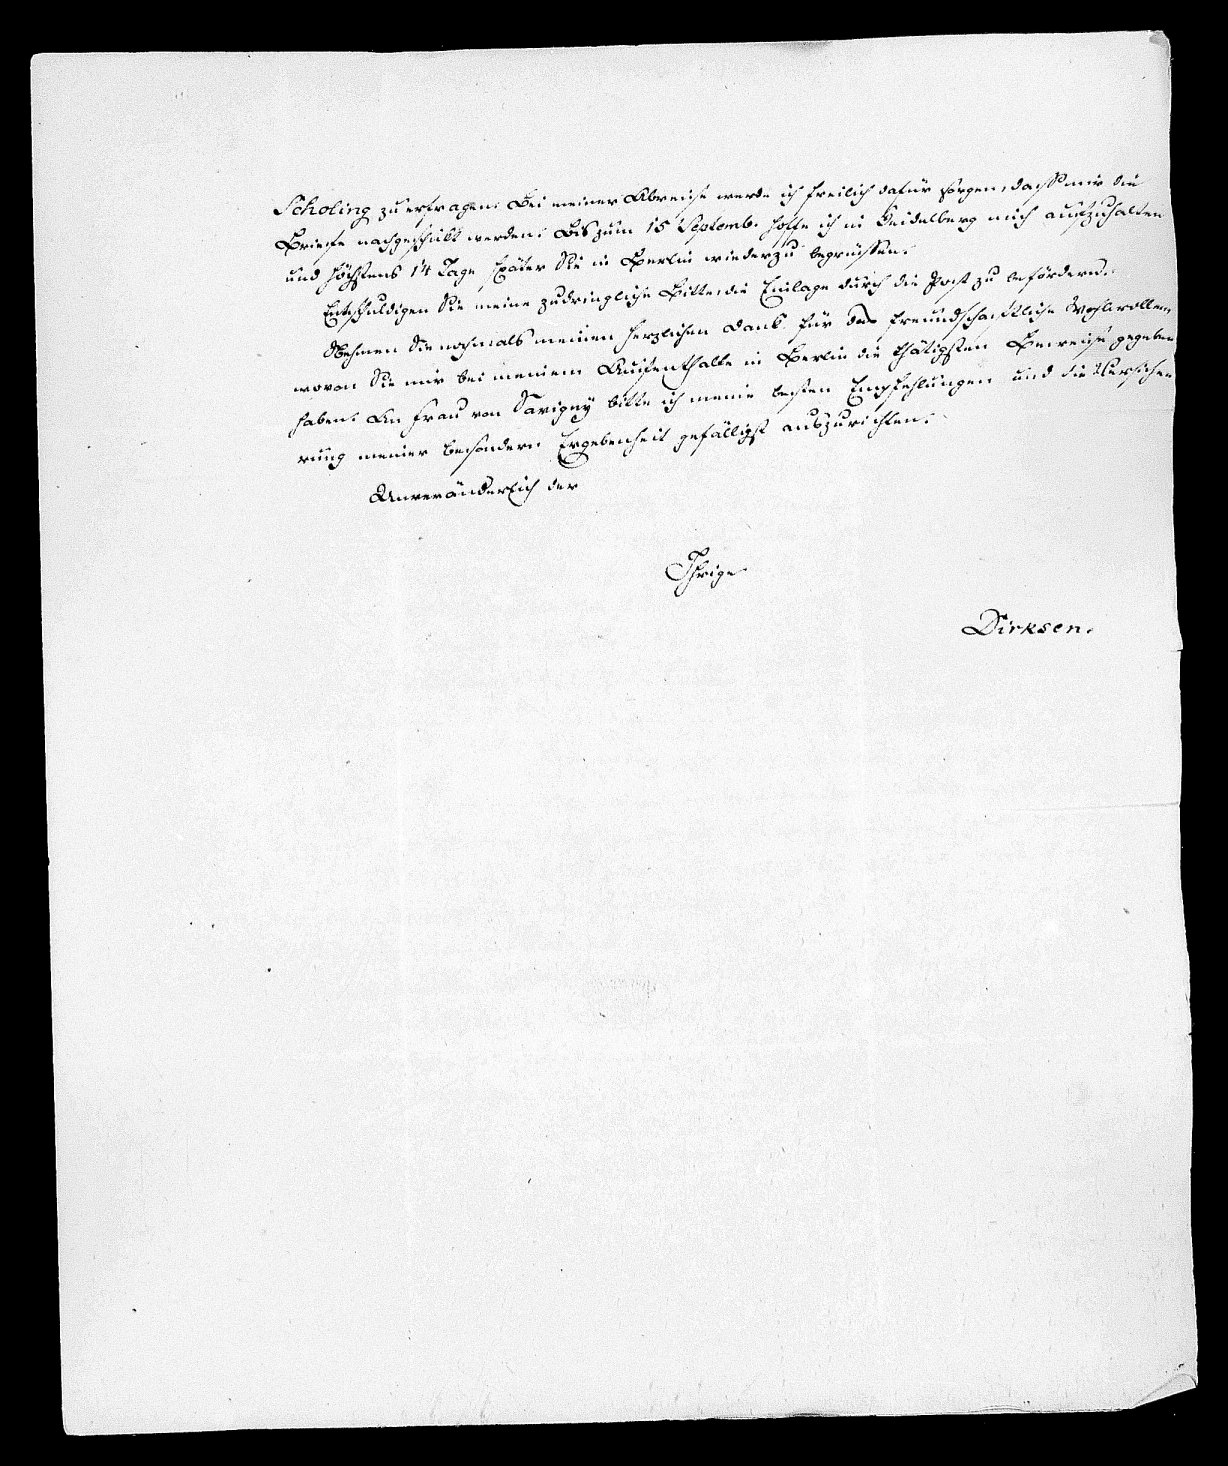 Scholing zu erfragen. Bei meiner Abreise werde ich freilich dafür sorgen, dass mir die
Briefe nachgeschickt werden. Bis zum 15 Septemb. hoffe ich in Heidelberg mich aufzuhalten
und höchstens 14 Tage später Sie in Berlin wiederzu begrüssen.
Entschuldigen Sie meine zudringliche Bitte, die Einlage durch die Post zu befördern.
Nehmen Sie nochmals meinen herzlichen Dank für das freundschaftliche Wohlwollen,
wovon Sie mir bei meinem Aufenthalte in Berlin die thätigsten Beweise gegeben
haben. An Frau von Savigny bitte ich meine besten Empfehlungen und die Versiche
rung meiner besondern Ergebenheit gefälligst auszurichten.
Unveränderlich der
Ihrige
Dirksen.